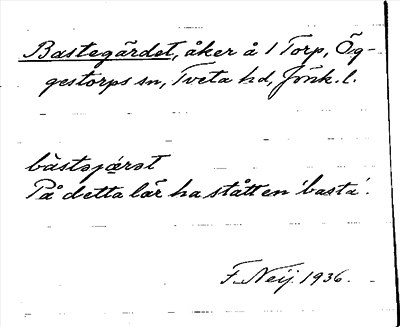 Bastegärdet, åker å 1 Torp, Ög-
gestorps sn, Tveta hd, Jönk. l.
På detta lär ha stått en 'basta'.
F. Neij. 1936.